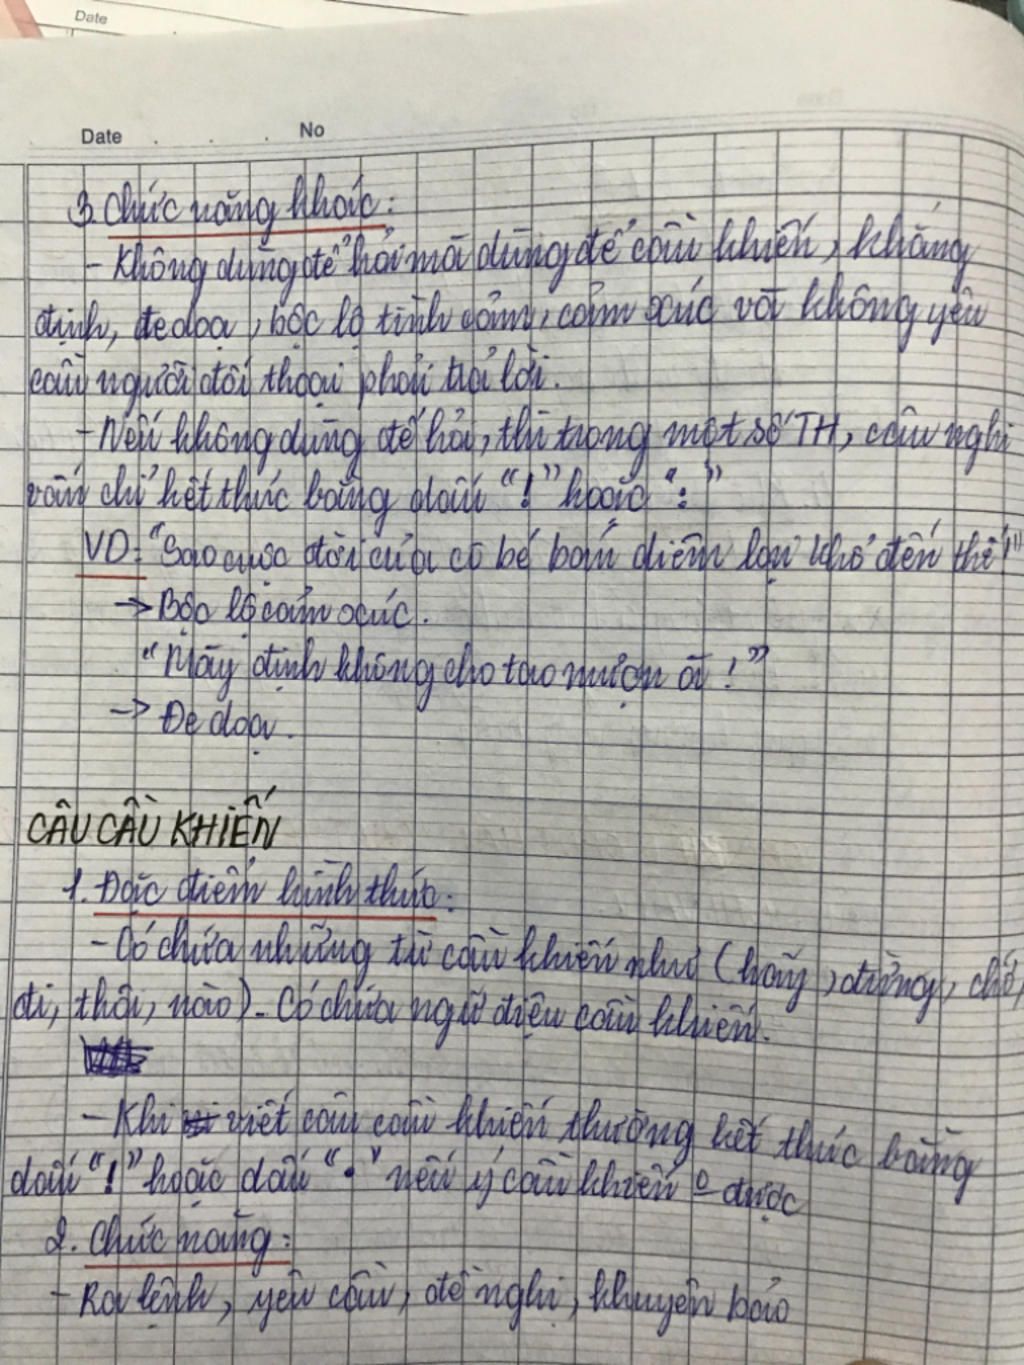 Date
Date . . No
3. Chức năng khác:
- Không dùng để hỏi mà dùng để cầu khiến, khẳng
định, đe doạ, bộc lộ tình cảm, cảm xúc và không yêu
cầu người đối thoại phải trả lời.
- Nếu không dùng để hỏi, thì trong một số TH, câu nghi
vấn chỉ kết thúc bằng dấu "!" hoặc "."
VD: "Sao cuộc đời của cô bé bán diêm lại khổ đến thế!"
-> Bộc lộ cảm xúc.
"Mày định không cho tao mượn à!"
-> Đe doạ.
CÂU CẦU KHIẾN
1. Đặc điểm hình thức:
- Có chứa những từ cầu khiến như (hãy, đừng, chớ,
đi, thôi, nào). Có chứa ngữ điệu cầu khiến.
- Khi viết câu cầu khiến thường kết thúc bằng
dấu "!" hoặc dấu "." nếu ý cầu khiến o được
2. Chức năng:
- Ra lệnh, yêu cầu, đề nghị, khuyên bảo